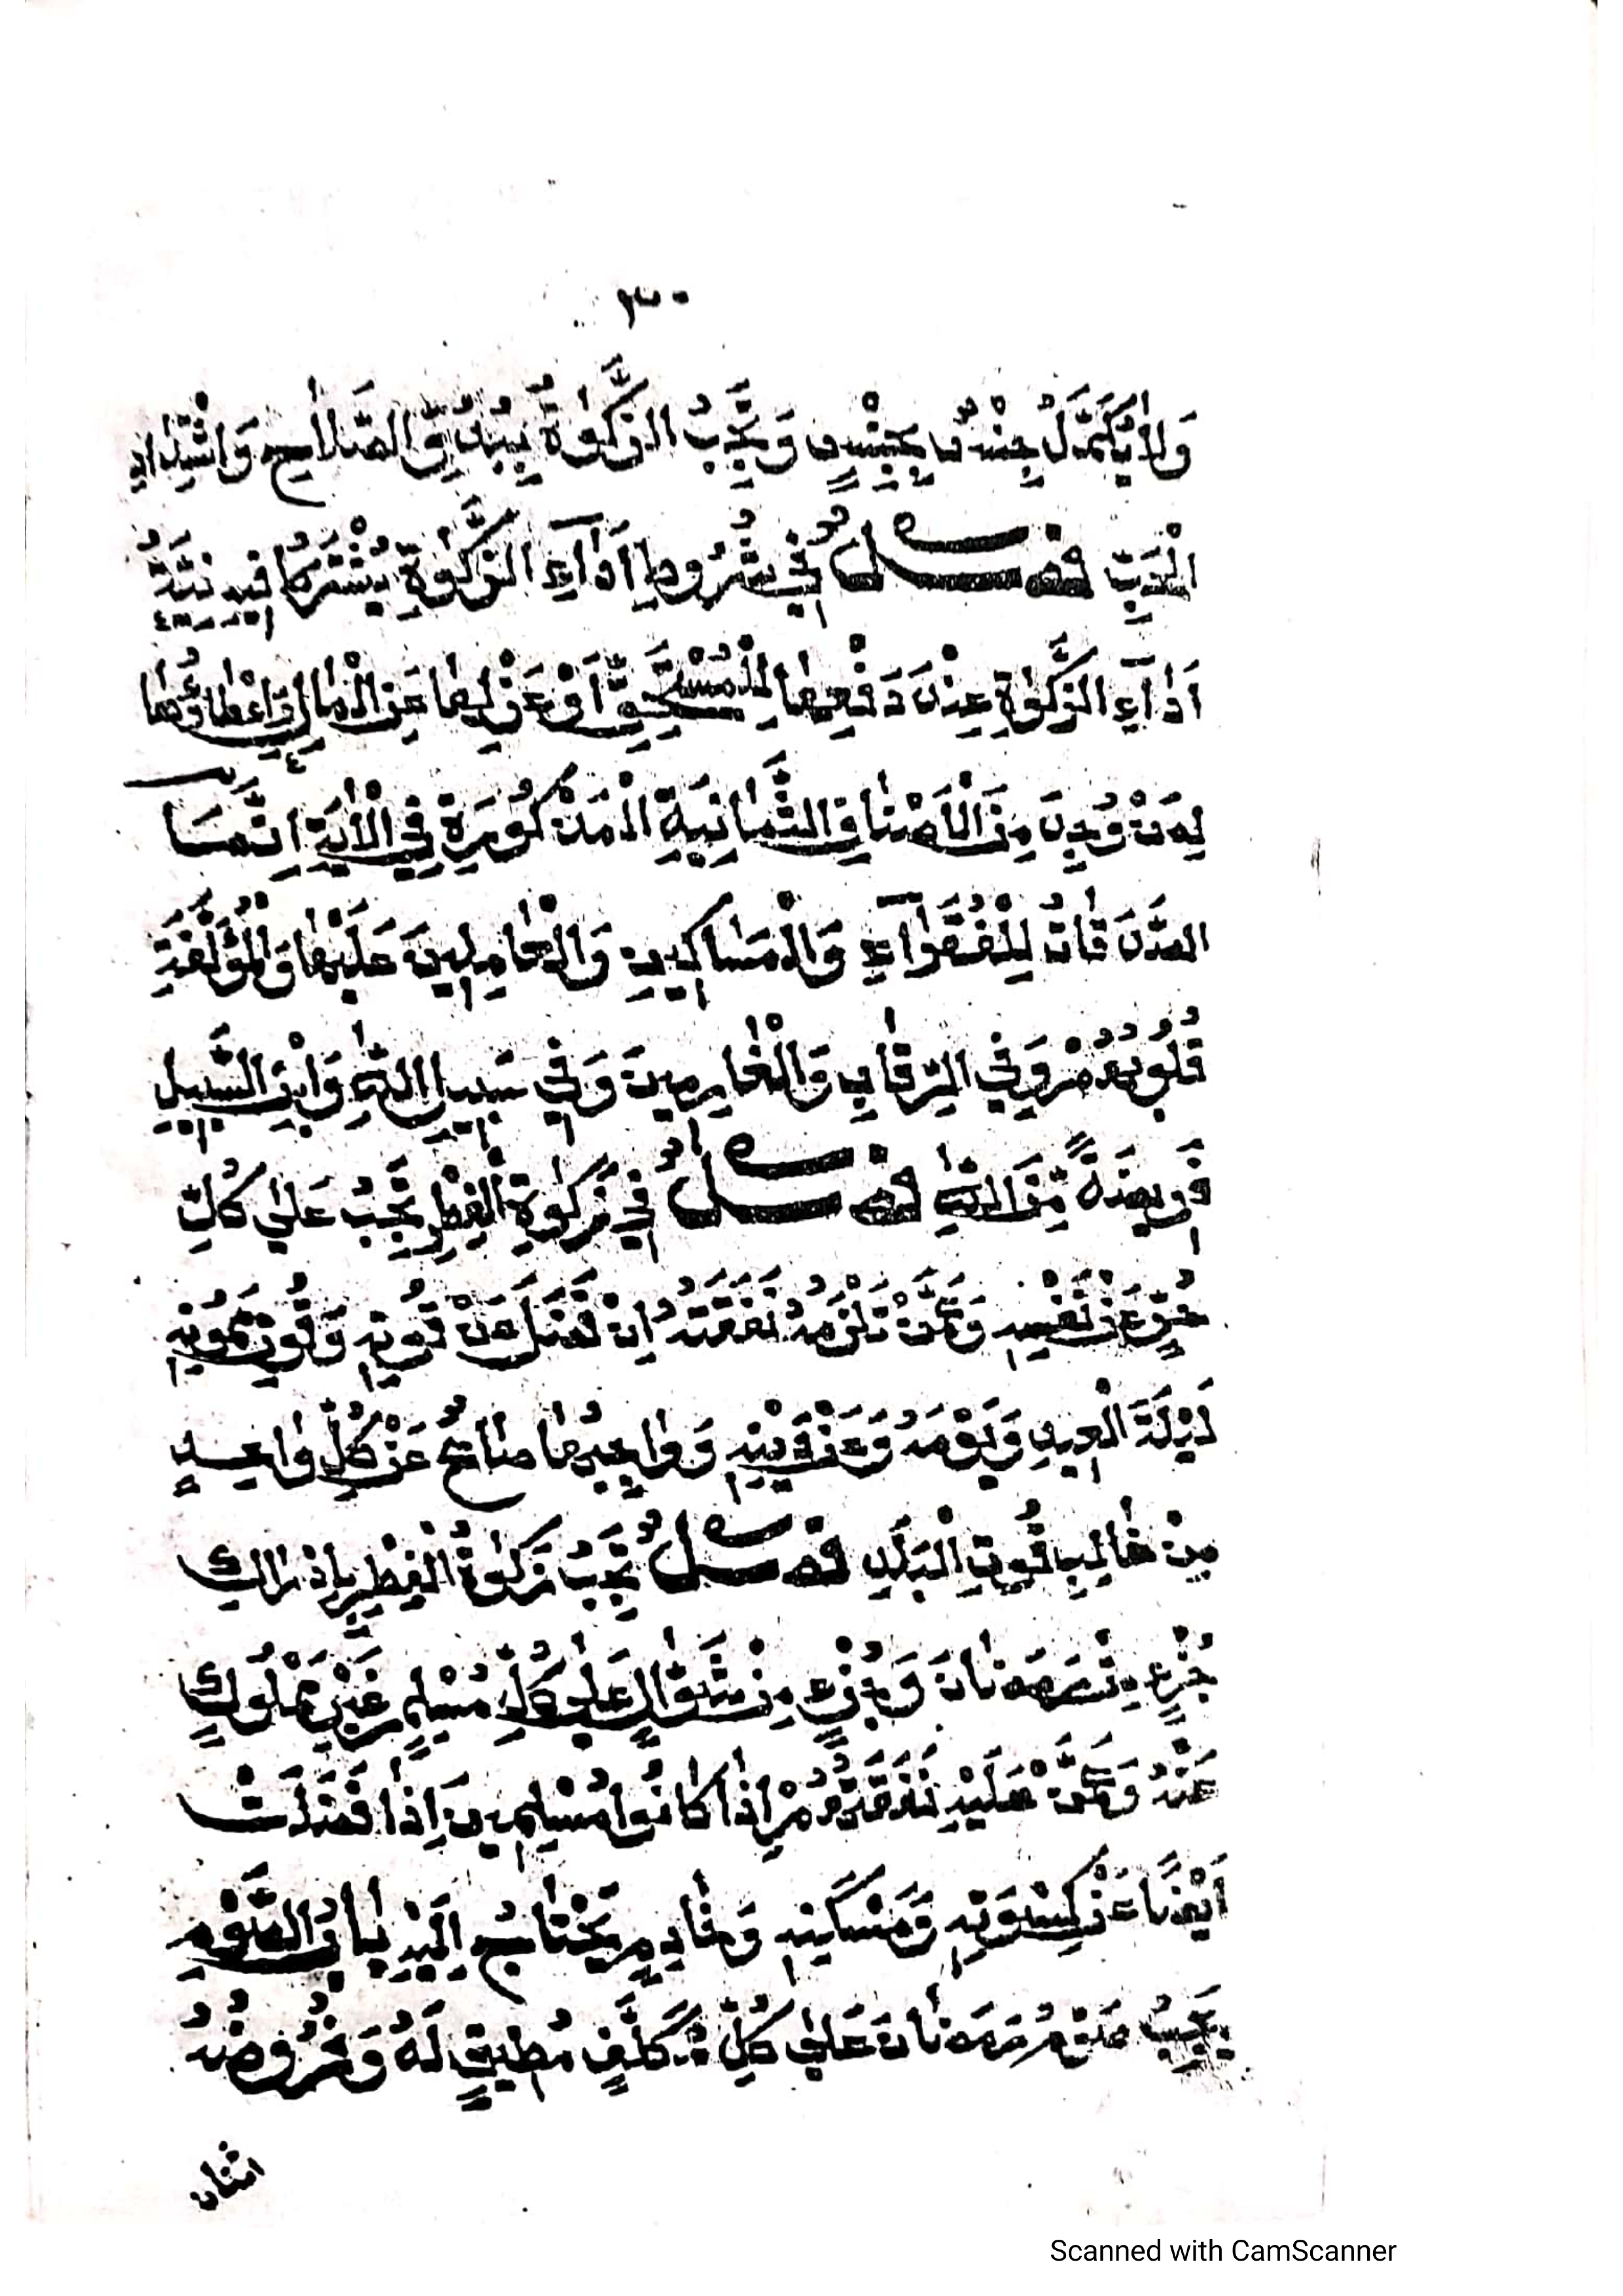 ٣٠
وَلَا يُكَمَّلُ جِنْسٌ بِجِنْسٍ وَتَجِبُ الزَّكَوٰةُ بِبُدُوِّ الصَّلَاحِ وَاشْتِدَادِ
الْحَبِّ فَصْلٌ فِي شُرُوطِ اَدَآءِ الزَّكَوٰةِ يُشْتَرَطُ فِيهِ نِيَّةُ
اَدَآءِ الزَّكَوٰةِ عِنْدَ دَفْعِهَا لِلْمُسْتَحِقِّ اَوْ عَزْلِهَا عَنِ الْمَالِ وَاِعْطَاؤُهَا
لِمَنْ وُجِدَ مِنَ الْاَصْنَافِ الثَّمَانِيَةِ الْمَذْكُورَةِ فِي الْاٰيَةِ اِنَّمَا
الصَّدَقَاتُ لِلْفُقَرَآءِ وَالْمَسَاكِينِ وَالْعَامِلِينَ عَلَيْهَا وَالْمُؤَلَّفَةِ
قُلُوبُهُمْ وَفِي الرِّقَابِ وَالْغَارِمِينَ وَفِي سَبِيلِ اللّٰهِ وَابْنِ السَّبِيلِ
فَرِيضَةً مِّنَ اللّٰهِ فَصْلٌ فِي زَكَوٰةِ الْفِطْرِ تَجِبُ عَلٰي كُلِّ
حُرٍّ عَنْ نَفْسِهِ وَعَمَّنْ تَلْزَمُهُ نَفَقَتُهُ اِنْ فَضَلَ عَنْ قُوتِهِ وَقُوتِ مَمُونِهِ
لَيْلَةَ الْعِيدِ وَيَوْمَهُ وَعَنْ دَيْنِهِ وَوَاجِبُهَا صَاعٌ عَنْ كُلِّ وَاحِدٍ
مِنْ غَالِبِ قُوتِ الْبَلَدِ فَصْلٌ تَجِبُ زَكَوٰةُ الْفِطْرِ بِاِدْرَاكِ
جُزْءٍ مِنْ رَمَضَانَ وَجُزْءٍ مِنْ شَوَّالٍ عَلٰي كُلِّ مُسْلِمٍ غَيْرِ مَمْلُوكٍ
عَنْهُ وَعَمَّنْ عَلَيْهِ نَفَقَتُهُمْ اِذَا كَانُوا مُسْلِمِينَ اِذَا فَضَلَتْ
اَيْضًا عَنْ كِسْوَتِهِ وَمَسْكَنِهِ وَخَادِمٍ يَحْتَاجُ اِلَيْهِ بَابُ الصَّوْمِ
يَجِبُ صَوْمُ رَمَضَانَ عَلٰي كُلِّ مُكَلَّفٍ مُطِيقٍ لَهُ وَفُرُوضُهُ
اثنان
Scanned with CamScanner